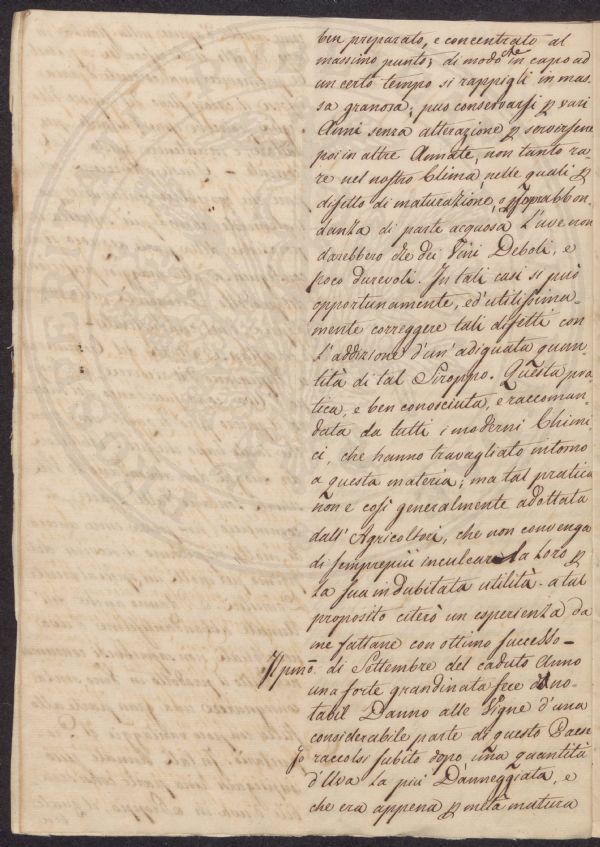 ben preparato, e concentrato al
massimo punto; di modo che in capo ad
un certo tempo si rappigli in mas-
sa granosa; può conservarsi p vari
Anni senza alterazione p servirsene
poi in altre Annate, non tanto ra-
re nel nostro Clima, nelle quali p
difetto di maturazione, o p soprabbon-
danza di parte acquosa L'uve non
darebbero che dei Vini Deboli, e
poco durevoli. In tali casi si può
opportunamente, ed utilissima-
mente correggere tali difetti con
L'addizione d'un'adiquata quan-
tità di tal Siroppo. Questa pra
tica, e ben conosciuta, e raccoman-
data da tutti i moderni Chimi-
ci, che hanno travagliato intorno
a questa materia; ma tal pratica
non e così generalmente adottata
dall'Agricoltori, che non convenga
di semprepiù inculcare La Loro p
La sua indubitata utilità. a tal
proposito citerò un esperienza da
me fattane con ottimo successo –
Il pmo. di Settembre del caduto Anno
una forte grandinata fece no-
tabil Danno alle Vigne d'una
considerabile parte di questo Paese
Jo raccolsi subito dopo una quantità
d'Uva La più Danneggiata, e
che era appena p metà matura